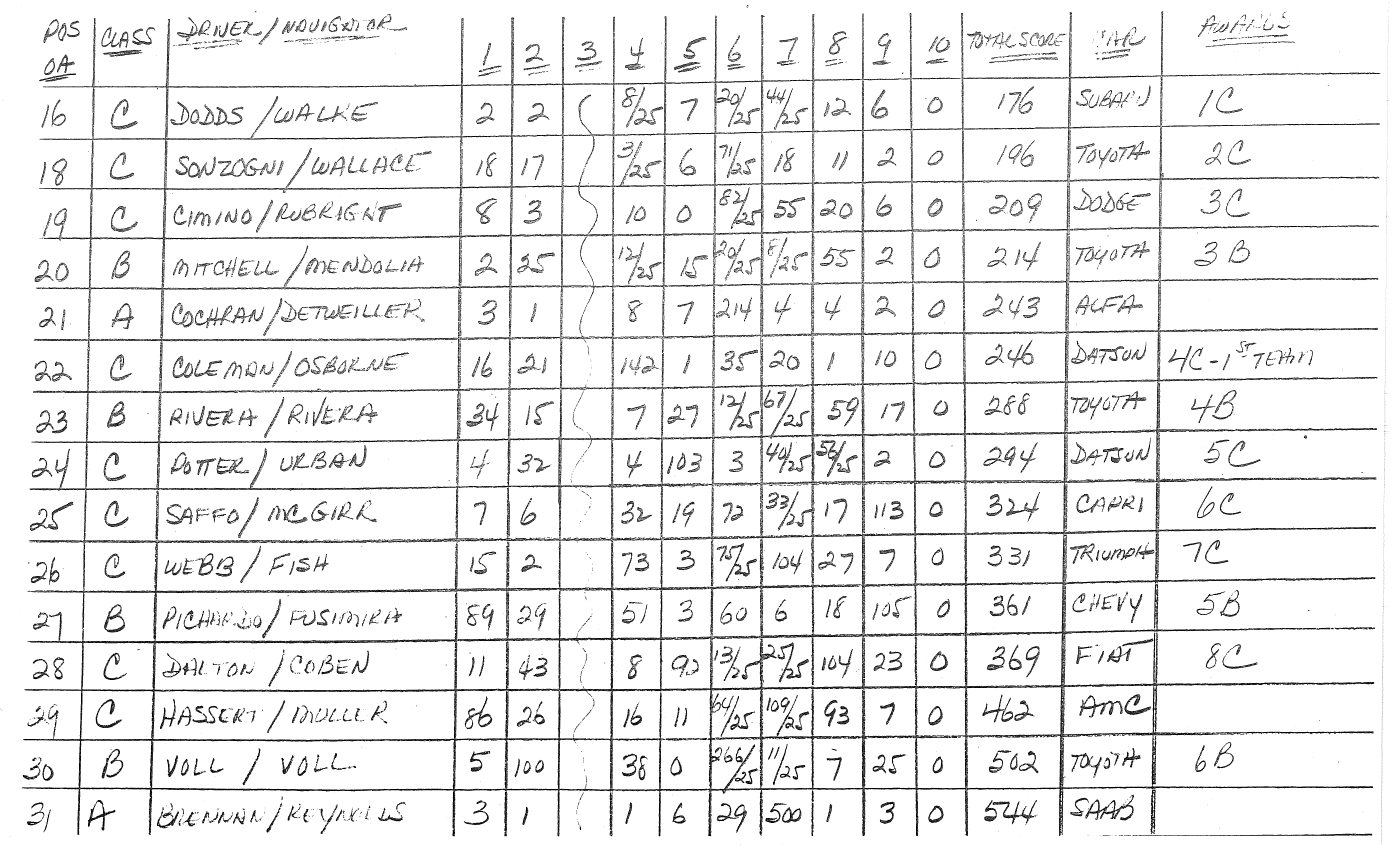 POS OA CLASS DRIVER/NAVIGATOR 1 2 3 4 5 6 7 8 9 10 TOTAL SCORE CAR AWARDS
16 C DODDS/WALKE 2 2 8/25 7 20/25 44/25 12 6 0 176 SUBARU 1C
18 C SONZOGNI/WALLACE 18 17 3/25 6 71/25 18 11 2 0 196 TOYOTA 2C
19 C CIMINO/RUBRIGHT 8 3 10 0 82/25 55 20 6 0 209 DODGE 3C
20 B MITCHELL/MENDOLIA 2 25 12/25 15 20/25 8/25 55 2 0 214 TOYOTA 3B
21 A COCHRAN/DETWEILLER 3 1 8 7 214 4 4 2 0 243 ALFA
22 C COLEMAN/OSBORNE 16 21 142 1 35 20 1 10 0 246 DATSUN 4C-1ST TEAM
23 B RIVERA/RIVERA 34 15 7 27 12/25 67/25 59 17 0 288 TOYOTA 4B
24 C POTTER/URBAN 4 32 4 103 3 40/25 56/25 2 0 294 DATSUN 5C
25 C SAFFO/MCGIRR 7 6 32 19 72 33/25 17 113 0 324 CAPRI 6C
26 C WEBB/FISH 15 2 73 3 75/25 104 27 7 0 331 TRIUMPH 7C
27 B PICHARDO/FUSIMIRA 89 29 51 3 60 6 18 105 0 361 CHEVY 5B
28 C DALTON/COBEN 11 43 8 92 13/25 25/25 104 23 0 369 FIAT 8C
29 C HASSERT/MULLER 86 26 16 11 64/25 109/25 93 7 0 462 AMC
30 B VOLL/VOLL 5 100 38 0 266/25 11/25 7 25 0 502 TOYOTA 6B
31 A BRENNAN/REYNOLDS 3 1 1 6 29 500 1 3 0 544 SAAB